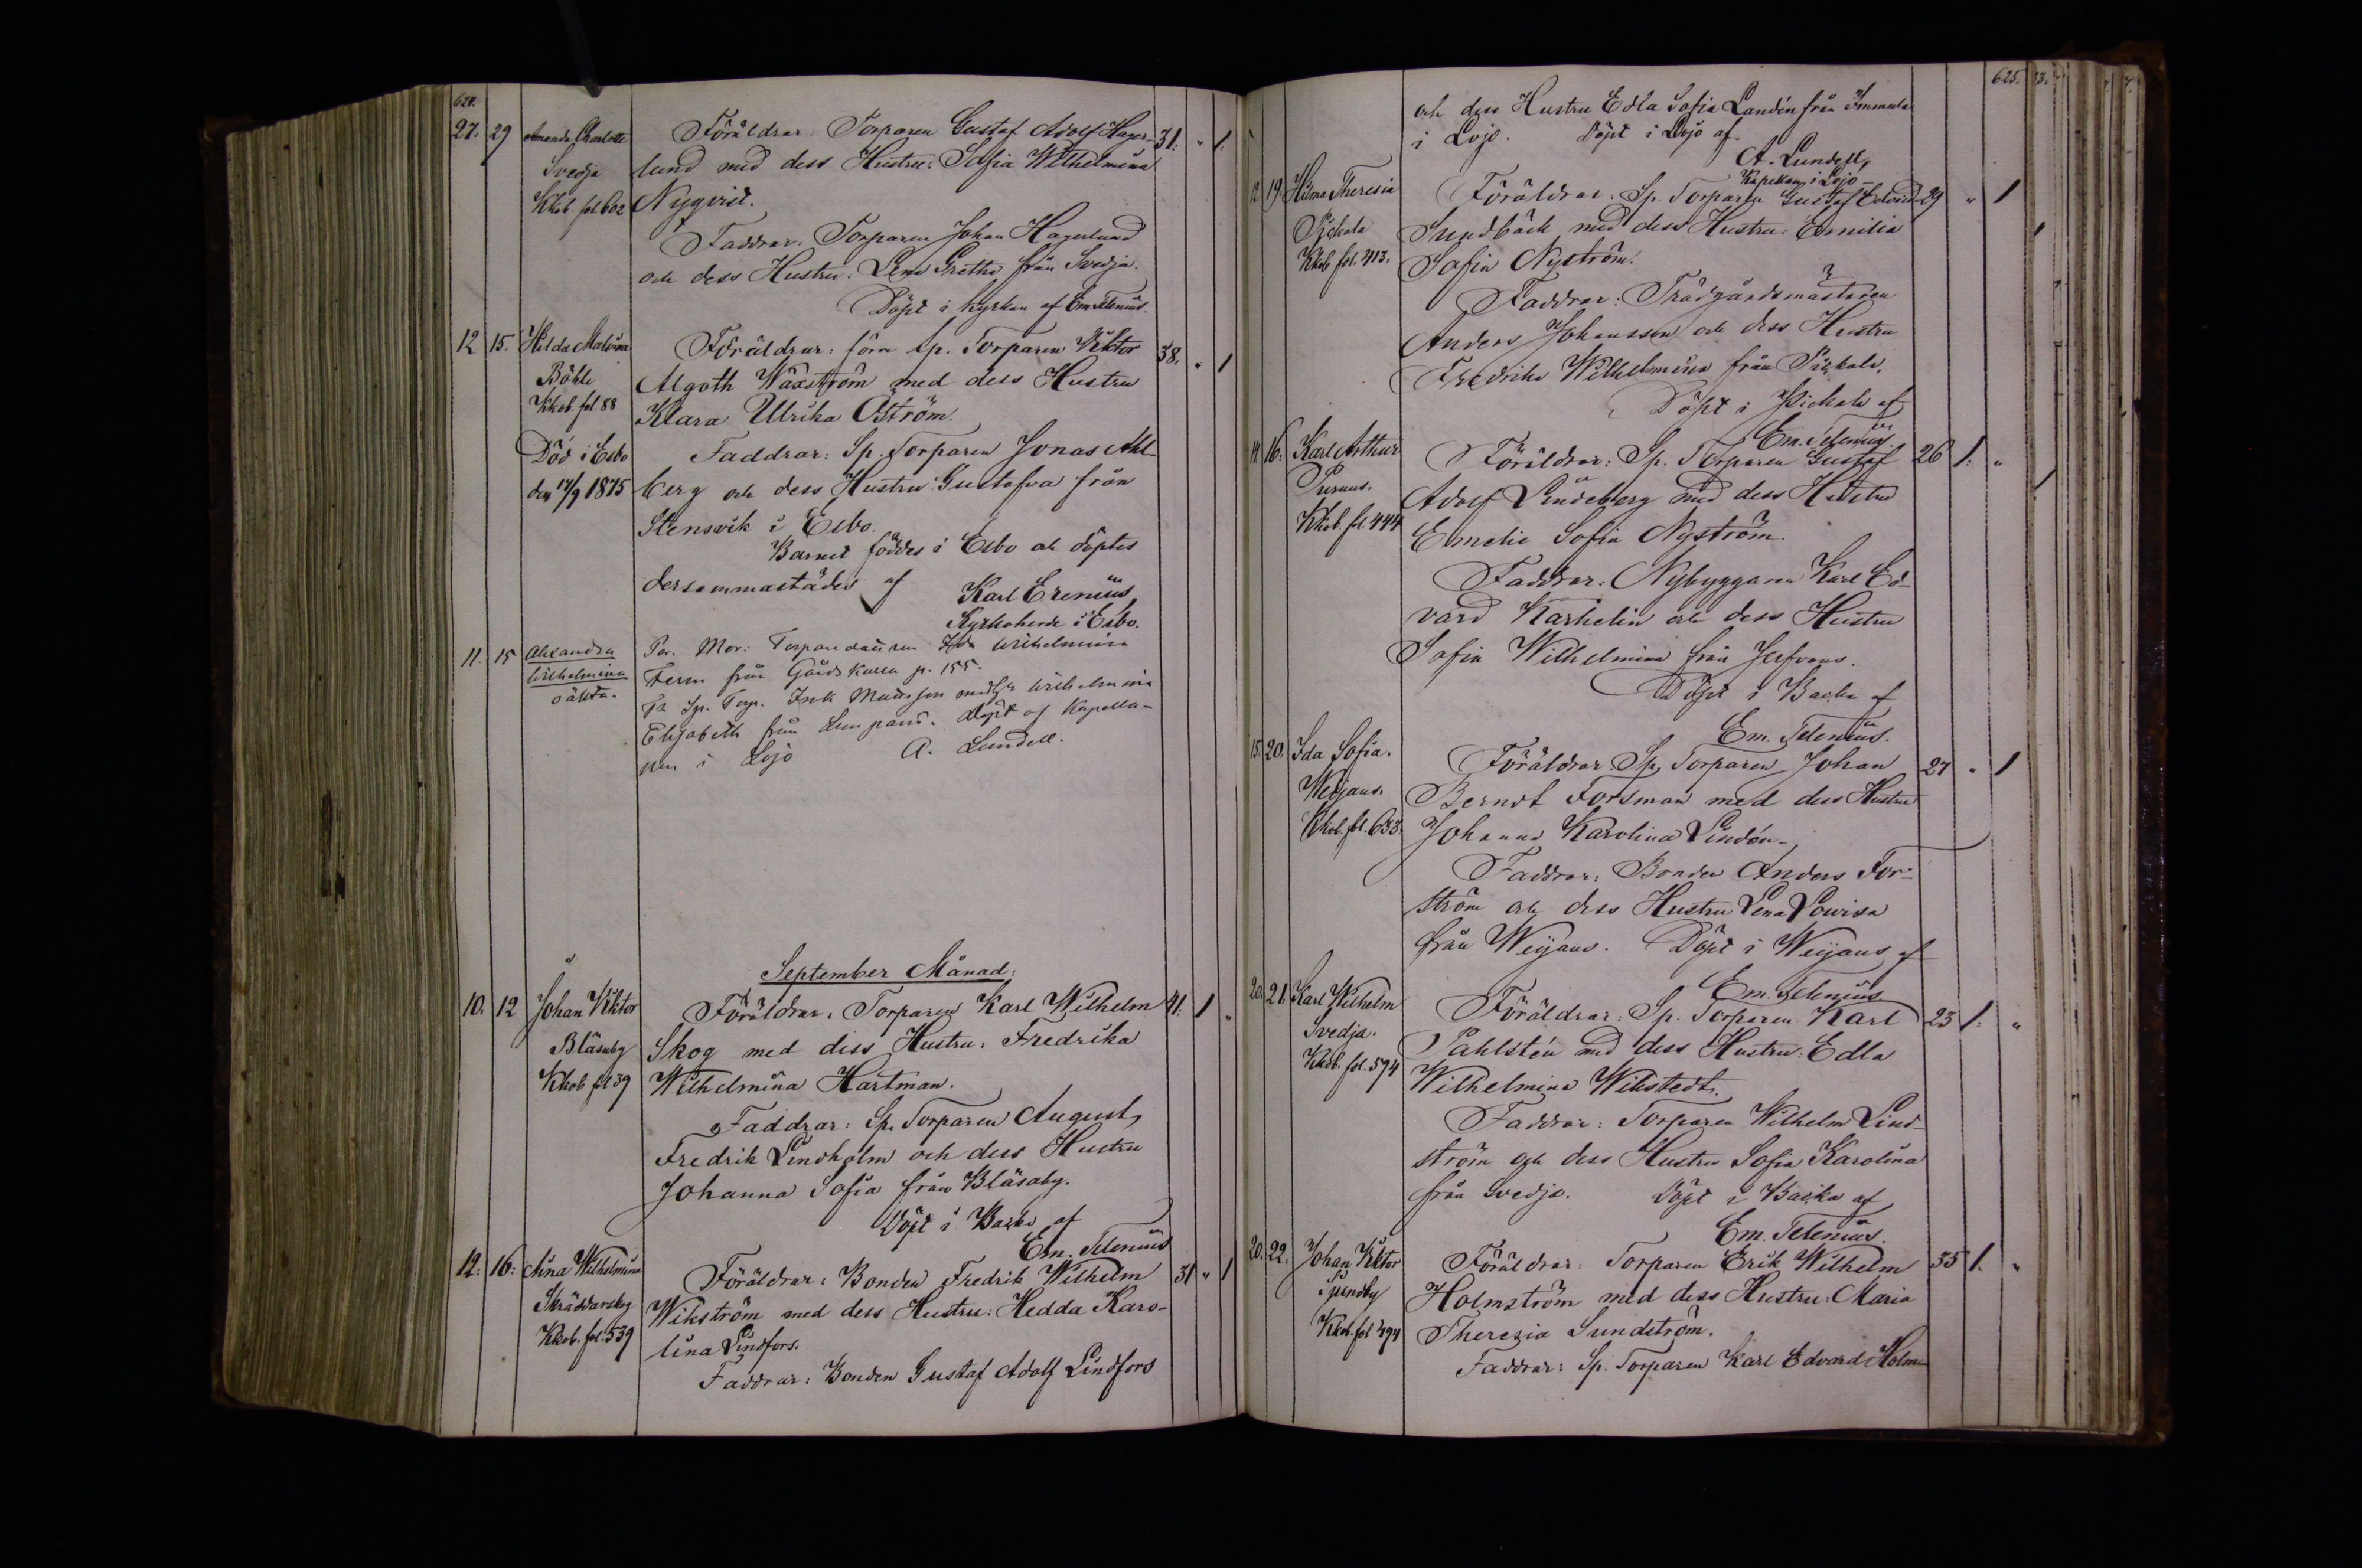 624.
27. 29 Amanda Charlotta Föräldrar: Torparen Gustaf Adolf Hager- 31. " 1.
Svedja lund med dess Hustru: Sofia Wilhelmina
Kkob. fol. 602 Nyqvist.
Faddrar: Torparen Johan Hagerlund
och dess Hustru: Lena Gretha från Svedja.
Döpt i kyrkan af Em. Telenius.
12 15. Hilda Malvina Föräldrar: förre Sp. Torparen Viktor 38. " 1
Böhle Algoth Wäxström med dess Hustru
Kkob. fol. 88 Klara Ulrika Öström.
Död i Esbo Faddrar: Sp. Torparen Jonas Ahl-
den 17/9 1875 berg och dess Hustru Gustafva från
Stensvik i Esbo.
Barnet föddes i Esbo och döptes
dersammastädes af Karl Erenius,
Kyrkoherde i Esbo.
11. 15 Alexandra För. Mor: Torparedottren Ida Wilhelmina
Wilhelmina Ferm från Gårdskulla p. 155.
oäkta. F. Sp. Torp. Isak Mattsson med h. Wilhelmina
Elisabeth från döpt af Kapella-
nen i Lojo A. Lundell.
September Månad:
10. 12 Johan Viktor Föräldrar: Torparen Karl Wilhelm 41. 1 "
Bläsaby Skog med dess Hustru: Fredrika
Kkob fol 39 Wilhelmina Hartman.
Faddrar: Sp. Torparen August
Fredrik Lindholm och dess Hustru
Johanna Sofia från Bläsaby.
Döpt i Backa af
Em. Telenius
12. 16. Aina Wilhelmina Föräldrar: Bonden Fredrik Wilhelm 31 " 1
Skräddarskog Wikström med dess Hustru: Hedda Karo-
Kkob. fol. 539 lina Lindfors.
Faddrar: Bonden Gustaf Adolf Lindfors
625. 33.
och dess Hustru Edla Sofia Landén från Immula
i Lojo. Döpt i Lojo af
A. Lundell,
Kapellan i Lojo
12 19 Hilma Theresia Föräldrar: Sp. Torparen Gustaf Edvard 29 " 1
Pickala Sundbäck med dess Hustru: Emilia
Kkob fol. 413. Sofia Nyström.
Faddrar: Trädgårdsmästaren
Anders Johansson och dess Hustru
Fredrika Wilhelmina från Pickala.
Döpt i Pickala af
Em. Telenius.
14 16. Karl Arthur Föräldrar: Sp. Torparen Gustaf 26 1. "
Purnus. Adolf Lindeberg med dess Hustru
Kkob. fol. 444 Emelie Sofia Nyström.
Faddrar: Nybyggaren Karl Ed-
vard Karhelin och dess Hustru
Sofia Wilhelmina från Jerfvans.
Döpt i Backa af
Em. Telenius.
15. 20. Ida Sofia. Föräldrar Sp. Torparen Johan 27 " 1
Weijans. Berndt Forsman med dess Hustru
Kkob. fol. 633. Johanna Karolina Lindén.
Faddrar: Bonden Anders For-
ström och dess Hustru Lena Lowisa
från Weijans. Döpt i Weijans af
Em. Telenius
20. 21. Karl Wilhelm Föräldrar: Sp. Torparen Karl 23 1. "
Svedja. Pahlstén med dess Hustru: Edla
Kkob. fol. 594 Wilhelmina Wikstedt.
Faddrar: Torparen Wilhelm Lind-
ström och dess Hustru Sofia Karolina
från Svedja. Döpt i Backa af
Em. Telenius.
20. 22. Johan Viktor Föräldrar: Torparen Erik Wilhelm 35 1. "
Sjundby Holmström med dess Hustru: Maria
Kkob. fol 494 Theresia Sundström.
Faddrar: Sp. Torparen Karl Edvard Holm-